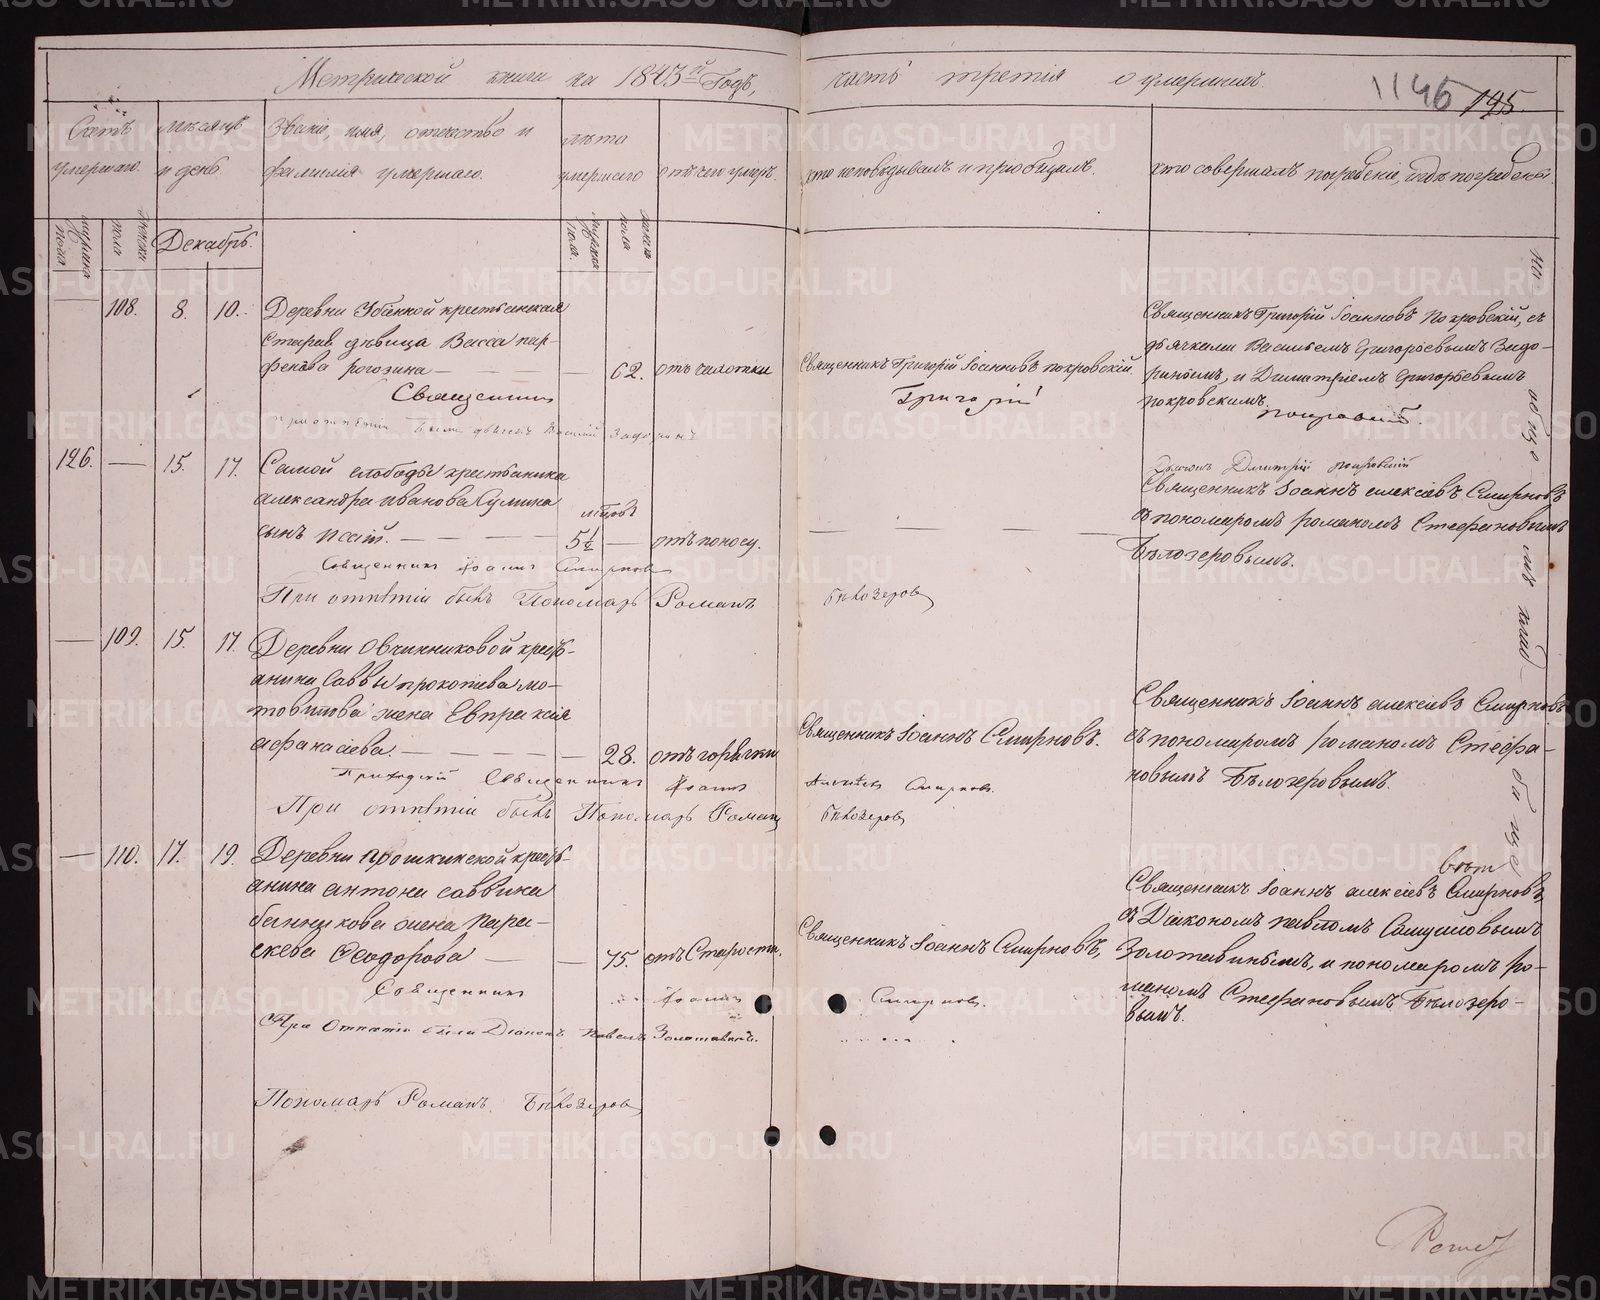 Метрической книги на 1843й Годъ,
часть третія о умершихъ.
1146 195.
Счетъ умершаго.
мѣсяцъ и день.
Званіе, имя, отчество и фамилія умершаго.
лѣта умершаго
отъ чего умеръ.
кто исповѣдывалъ и пріобщалъ.
кто совершалъ погребеніе, и гдѣ погребены.
мужеска пола
женска пола
Декабрь.
мужеска пола.
женска пола
108. 8. 10. Деревни крестьянская
старая дѣвица Васса пар-
фенова рогозина — 62. отъ чахотки
Священникъ Григорій Іоанновъ покровскій.
Священникъ Григорій Іоанновъ Покровскій, съ
дьячками Васильемъ Григорьевымъ Задо-
ринымъ, и Димитріемъ Григорьевымъ
покровскимъ.
Священникъ Григорій Покровскій.
При отпѣтіи были дьячекъ Василій Задоринъ
Дьячекъ Димитрій покровскій
126. — 15. 17. Самой слободы крестьянина
александра иванова Сулина
сынъ — мѣсцовъ 5½ — отъ поносу.
Священникъ Іоаннъ алексіевъ Смирновъ
съ пономаремъ романомъ Стефановымъ
Бѣлозеровымъ.
Священникъ Іоаннъ Смирновъ
При отпѣтіи былъ Пономарь Романъ Бѣлозеровъ
— 109. 15. 17. Деревни Овчинниковой кресть-
янина Саввы прокопіева мо-
товилова жена Евпраксія
афанасіева. — 28. отъ горячки
Священникъ Іоаннъ Смирновъ.
Священникъ Іоаннъ алексіевъ Смирновъ
съ пономаремъ романомъ Стефа-
новымъ Бѣлозеровымъ.
Приходскій Священникъ Іоаннъ Алексѣевъ Смирновъ.
При отпѣтіи былъ Пономарь Романъ Бѣлозеровъ
— 110. 17. 19. Деревни прошкинской кресть-
янина антона саввина
банникова жена Пара-
скева Феодорова — 75. отъ Старости.
Священникъ Іоаннъ Смирновъ,
Священникъ Іоаннъ алексіевъ Смирновъ,
съ Діакономъ павломъ
Золотавинымъ, и пономаремъ ро-
маномъ Стефановымъ Бѣлозеро-
вымъ.
Священникъ Іоаннъ Смирновъ.
При Отпѣтіи были Діаконъ Павелъ Золотавинъ.
Пономарь Романъ Бѣлозеровъ
На общемъ клад-
бище
METRIKI.GASO-URAL.RU